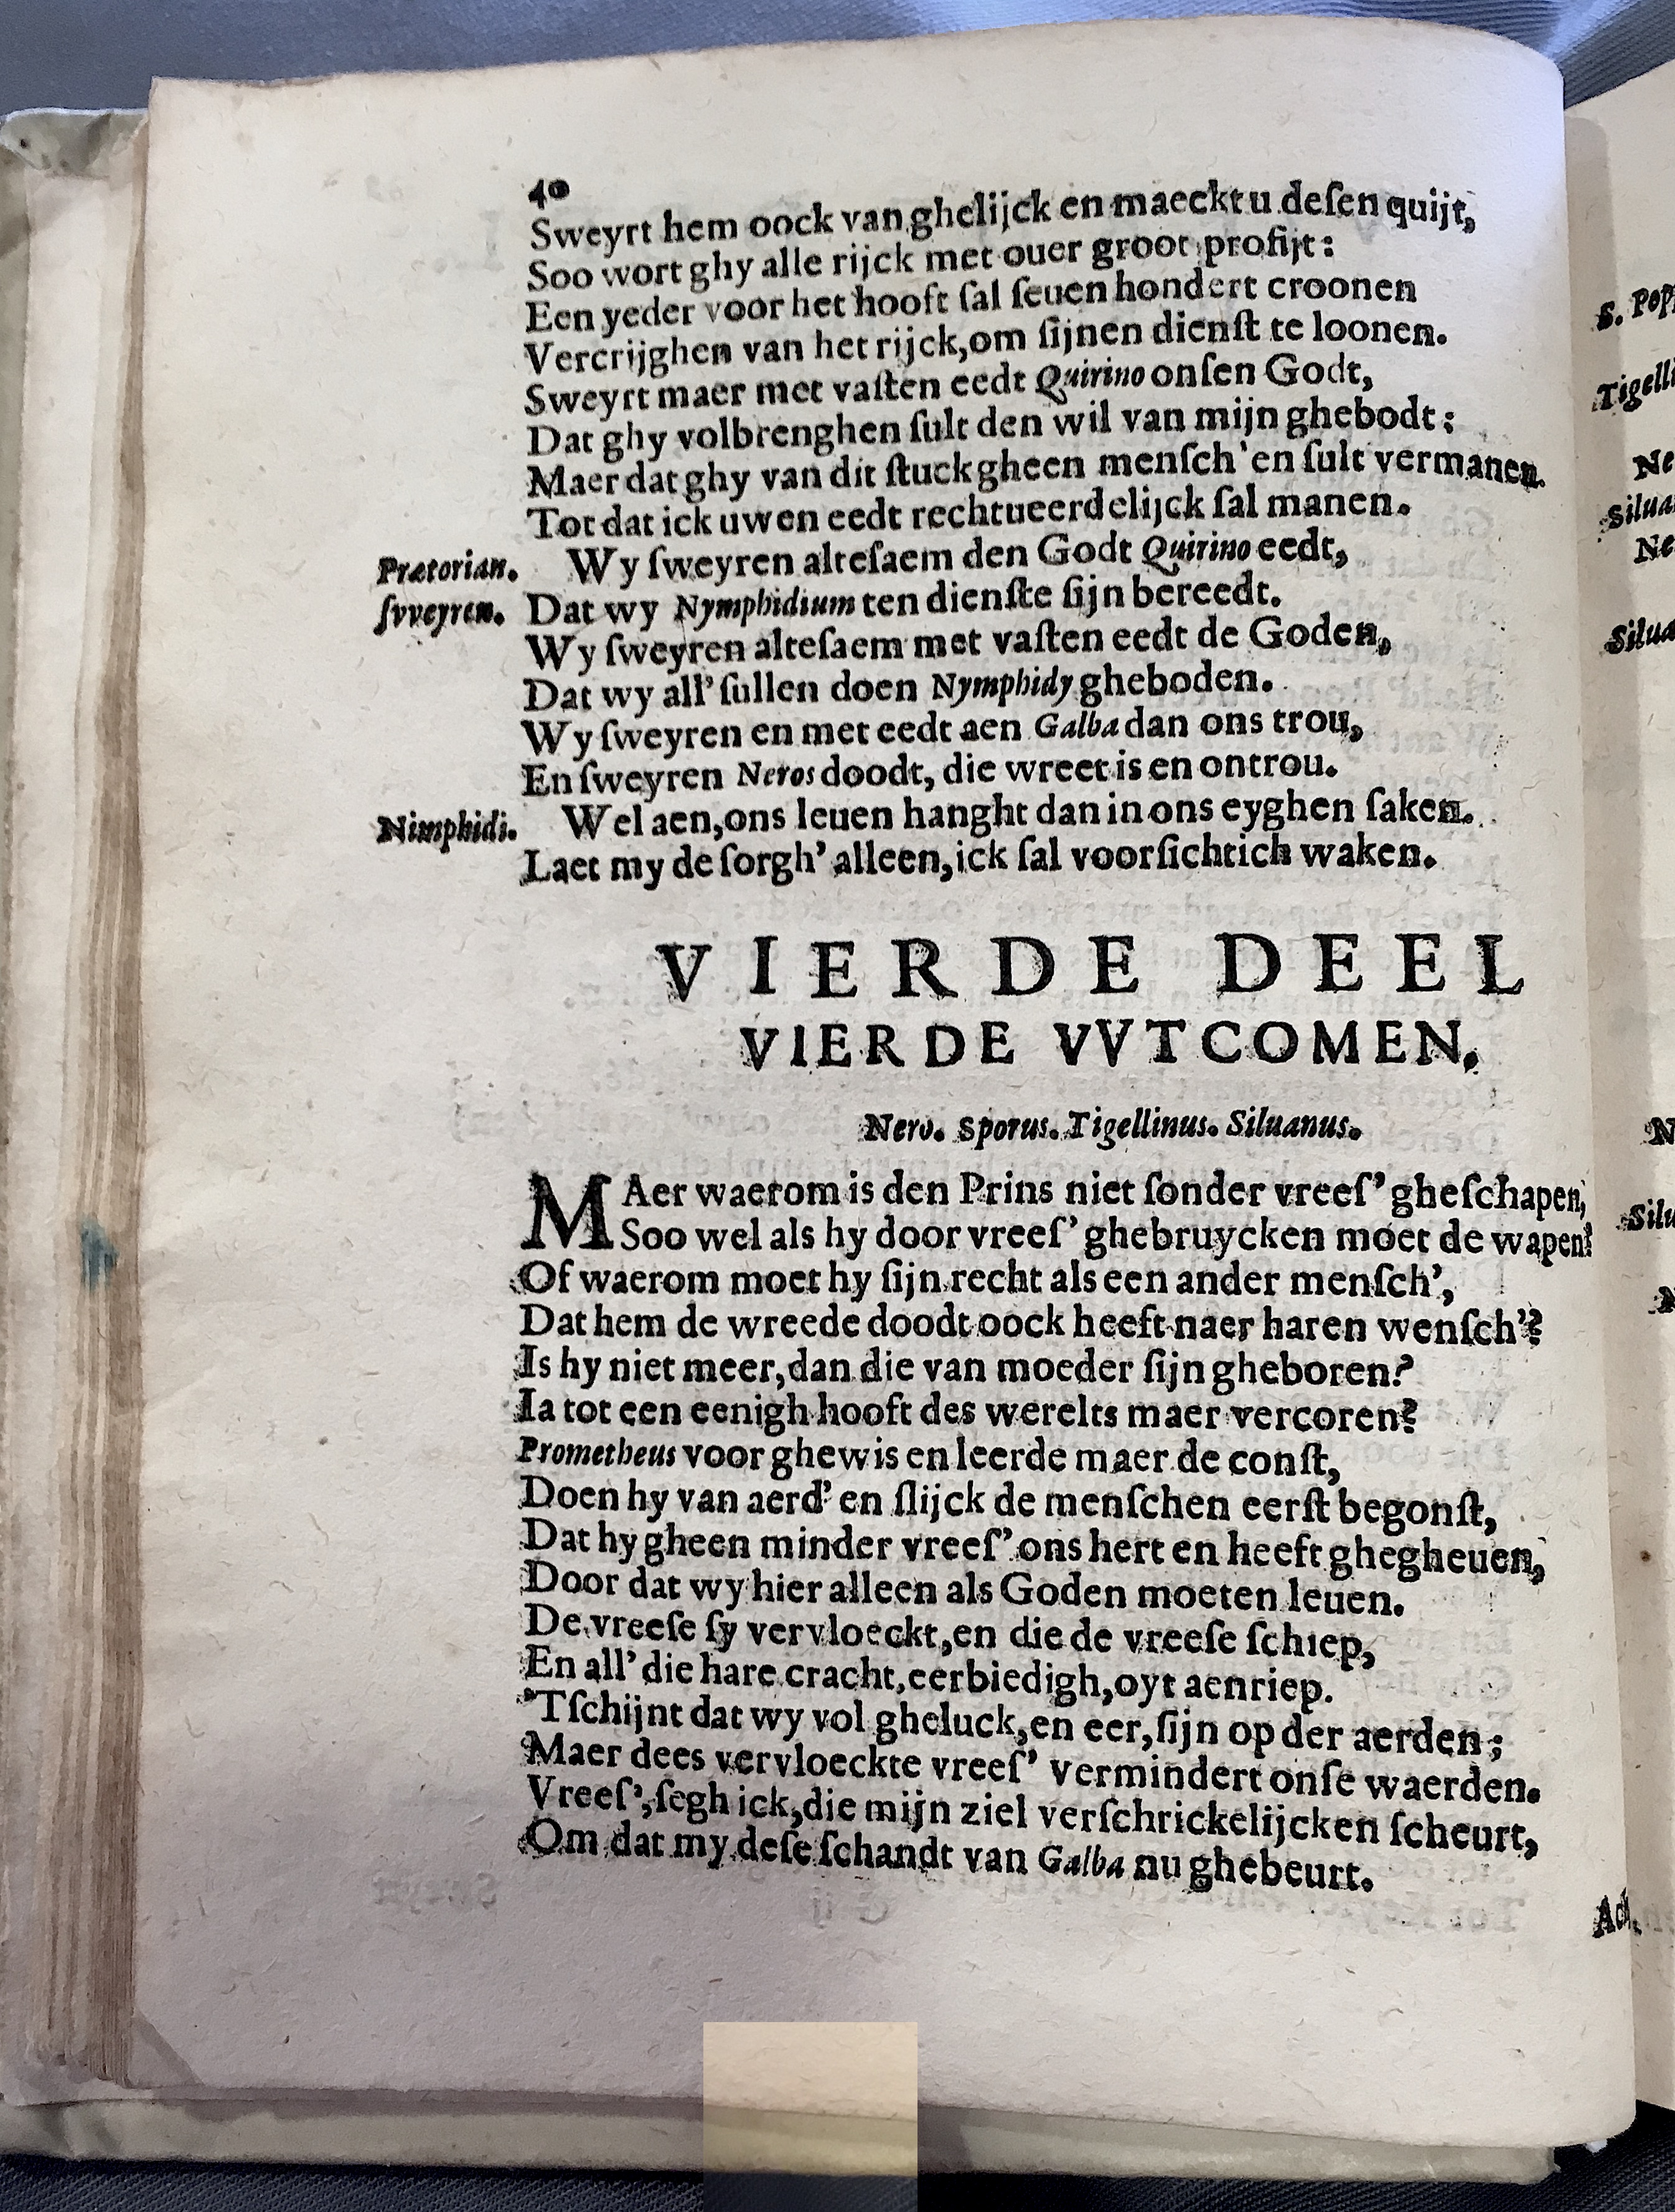 40
Sweyrt hem oock van ghelijck en maeckt u deſen quijt,
Soo wort ghy alle rijck met ouer groot profijt:
Een yeder voor het hooft ſal ſeuen hondert croonen
Vercrijghen van het rijck, om ſijnen dienſt te loonen.
Sweyrt maer met vaſten eedt Quirino onſen Godt,
Dat ghy volbrenghen ſult den wil van mijn ghebodt:
Maer dat ghy van dit ſtuck gheen menſch' en ſult vermanen.
Tot dat ick uwen eedt rechtueerdelijck ſal manen.
Prætorian. Wy ſweyren alteſaem den Godt Quirino eedt,
ſvveyren. Dat wy Nymphidium ten dienſte ſijn bereedt.
Wy ſweyren alteſaem met vaſten eedt de Goden,
Dat wy all' ſullen doen Nymphidy gheboden.
Wy ſweyren en met eedt aen Galba dan ons trou,
En ſweyren Neros doodt, die wreet is en ontrou.
Nimphidi. Wel aen, ons leuen hanght dan in ons eyghen ſaken.
Laet my de ſorgh' alleen, ick ſal voorſichtich waken.
VIERDE DEEL
VIERDE VVTCOMEN.
Nero. Sporus. Tigellinus. Siluanus.
MAer waerom is den Prins niet ſonder vreeſ' gheſchapen,
Soo wel als hy door vreeſ' ghebruycken moet de wapen?
Of waerom moet hy ſijn recht als een ander menſch',
Dat hem de wreede doodt oock heeft naer haren wenſch'?
Is hy niet meer, dan die van moeder ſijn gheboren?
Ia tot een eenigh hooft des werelts maer vercoren?
Prometheus voor ghewis en leerde maer de conſt,
Doen hy van aerd' en ſlijck de menſchen eerſt begonſt,
Dat hy gheen minder vreeſ' ons hert en heeft ghegheuen,
Door dat wy hier alleen als Goden moeten leuen.
De vreeſe ſy vervloeckt, en die de vreeſe ſchiep,
En all' die hare cracht, eerbiedigh, oyt aenriep.
'Tſchijnt dat wy vol gheluck, en eer, ſijn op der aerden;
Maer dees vervloeckte vreeſ' vermindert onſe waerden.
Vreeſ', ſegh ick, die mijn ziel verſchrickelijcken ſcheurt,
Om dat my deſe ſchandt van Galba nu ghebeurt.